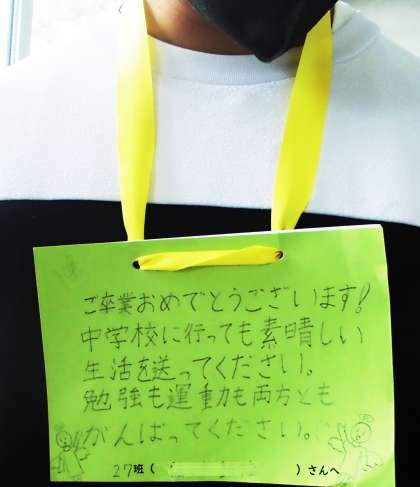 ご卒業おめでとうございます!
中学校に行っても素晴しい
生活を送ってください。
勉強も運動も両方とも
がんばってください。
27班( )さんへ